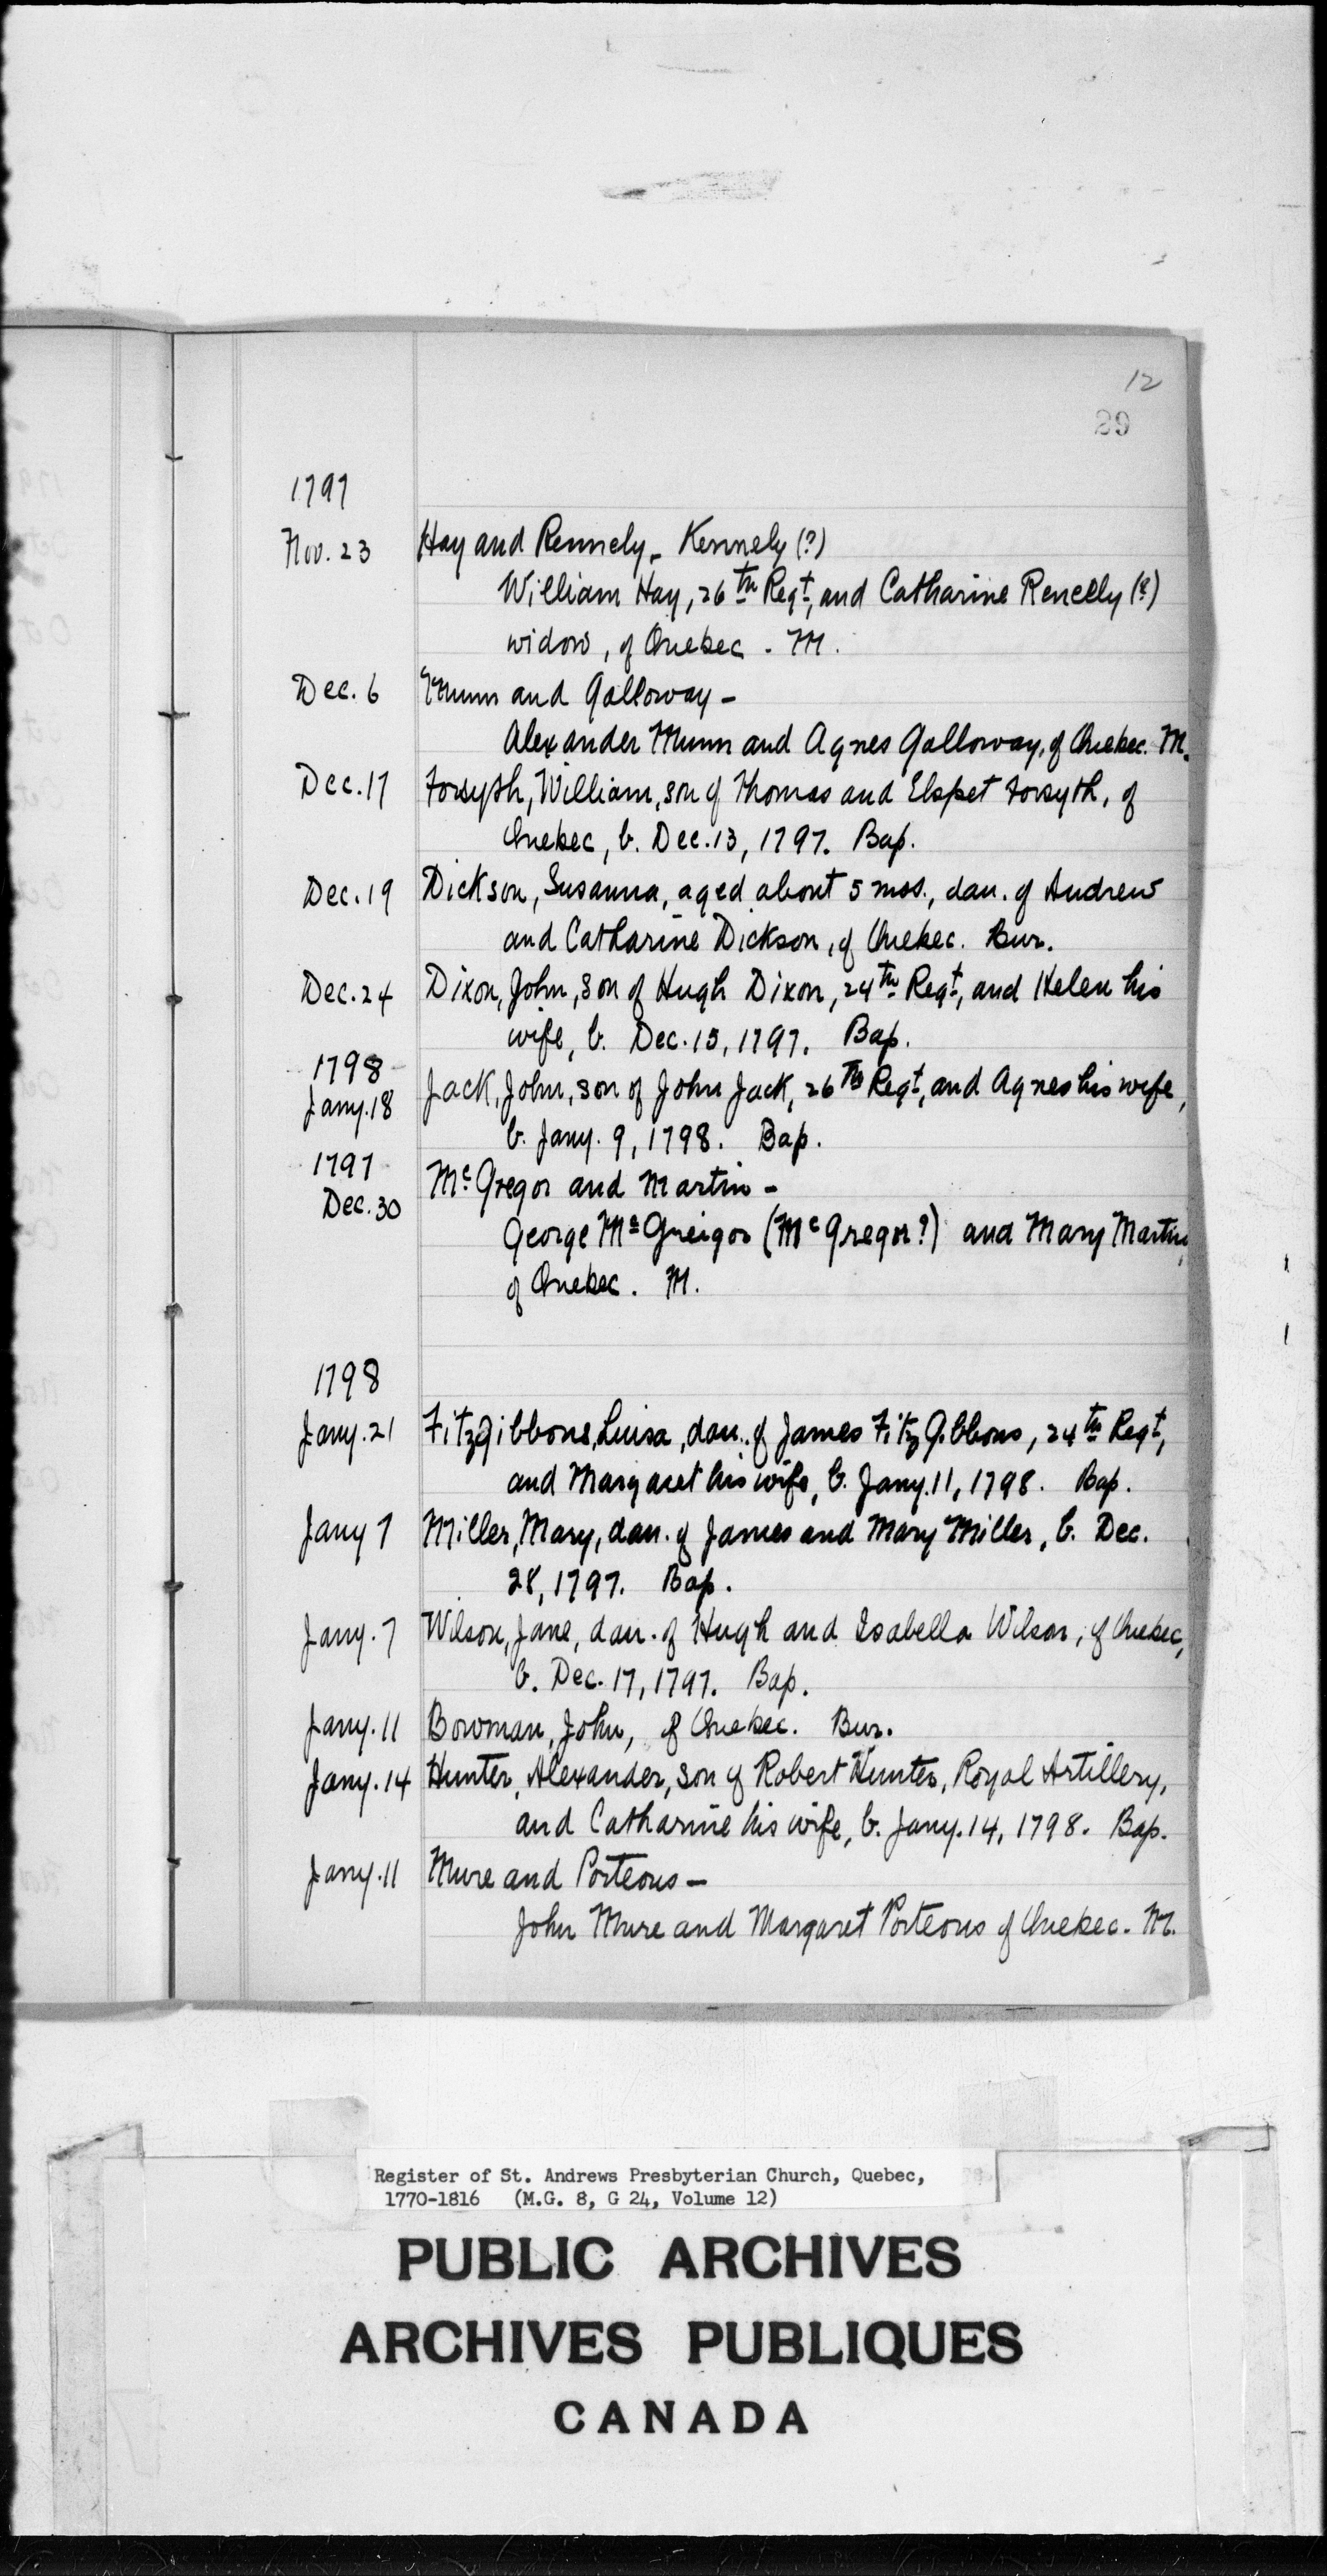 12
89
1797
Nov. 23 Hay and Rennely - Kennely (?)
William Hay, 26th Regt, and Catharine Renelly (?)
widow, of Quebec. M.
Dec. 6 Munn and Galloway -
Alexander Munn and Agnes Galloway, of Quebec. M.
Dec. 17 Forsyth, William, son of Thomas and Elspet Forsyth, of
Quebec, b. Dec. 13, 1797. Bap.
Dec. 19 Dickson, Susanna, aged about 5 mos., dau. of Andrew
and Catharine Dickson, of Quebec. Bur.
Dec. 24 Dixon, John, son of Hugh Dixon, 24th Regt, and Helen his
wife, b. Dec. 15, 1797. Bap.
1798
Jany. 18 Jack, John, son of John Jack, 26th Regt, and Agnes his wife,
b. Jany. 9, 1798. Bap.
1797
Dec. 30 Mc Gregor and Martin -
George Mc Greigor (Mc Gregor?) and Mary Martin,
of Quebec. M.
1798
Jany. 21 FitzGibbons, Luisa, dau. of James FitzGibbons, 24th Regt,
and Margaret his wife, b. Jany. 11, 1798. Bap.
Jany 7 Miller, Mary, dau. of James and Mary Miller, b. Dec.
28, 1797. Bap.
Jany. 7 Wilson, Jane, dau. of Hugh and Isabella Wilson, of Quebec,
b. Dec. 17, 1797. Bap.
Jany. 11 Bowman, John, of Quebec. Bur.
Jany. 14 Hunter, Alexander, son of Robert Hunter, Royal Artillery,
and Catharine his wife, b. Jany. 14, 1798. Bap.
Jany. 11 Mure and Porteous -
John Mure and Margaret Porteous of Quebec. M.
Register of St. Andrews Presbyterian Church, Quebec,
1770-1816 (M.G. 8, G 24, Volume 12)
PUBLIC ARCHIVES
ARCHIVES PUBLIQUES
CANADA